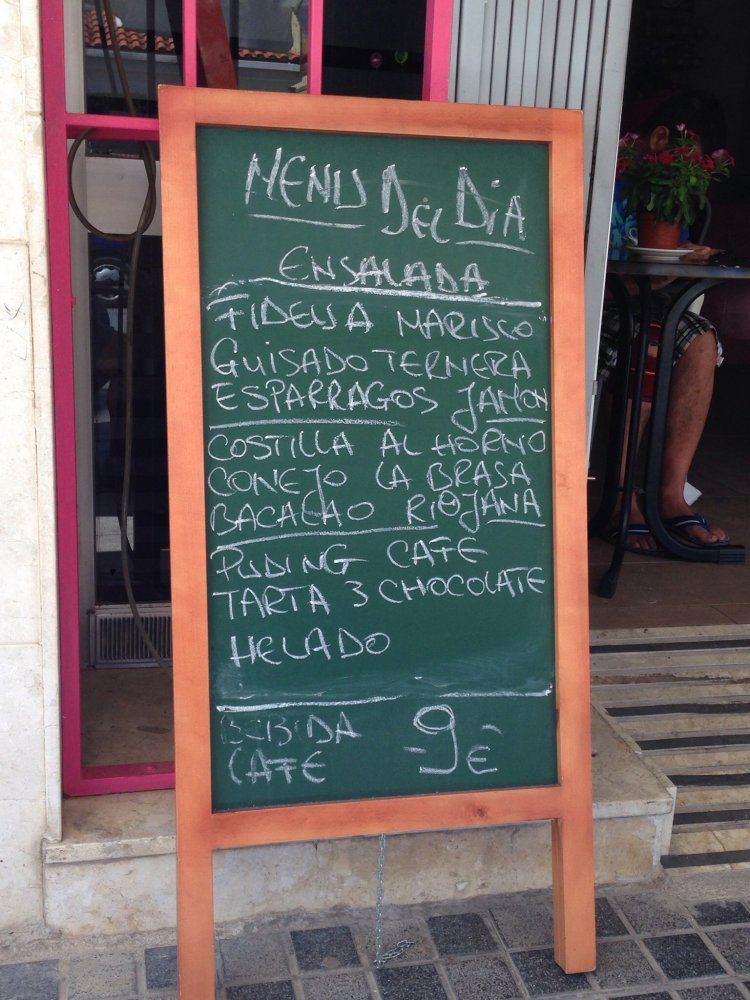 MENU DEL DIA
ENSALADA
FIDEUA MARISCO
GUISADO TERNERA
ESPARRAGOS JAMON
COSTILLA AL HORNO
CONEJO LA BRASA
BACALAO RIOJANA
PUDING CAFE
TARTA 3 CHOCOLATE
HELADO
BEBIDA
CAFE
-9-€